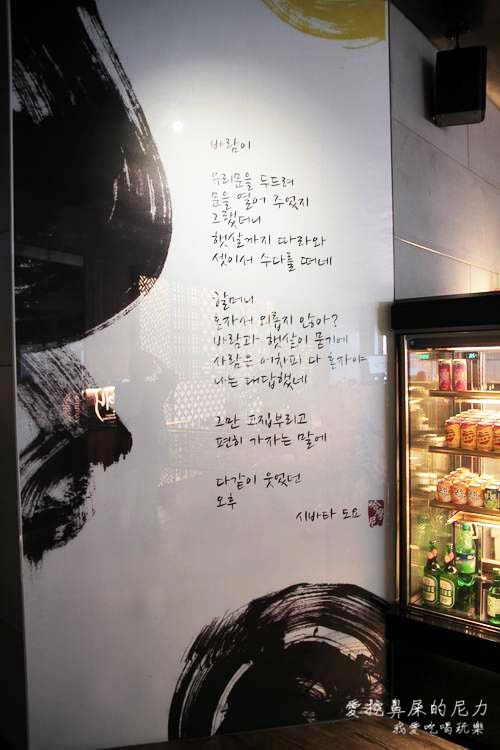 바람이
유리문을 두드려
문을 열어 주었지
그랬더니
햇살까지 따라와
셋이서 수다를 떠네
할머니
혼자서 외롭지 않아?
바람과 햇살이 묻기에
사람은 어차피 다 혼자야
나는 대답했네
그만 고집부리고
편히 가자는 말에
다같이 웃었던
오후
시바타 도요
愛挖鼻屎的尼力
我愛吃喝玩樂